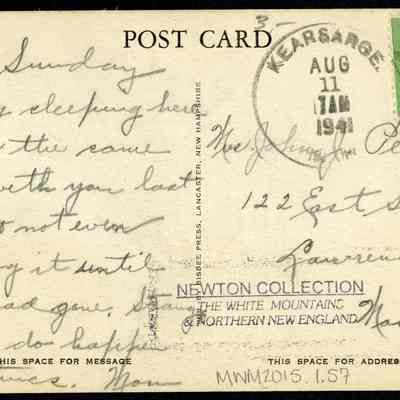 3-
POST CARD
KEARSARGE.
AUG
11
7AM
1941
Sunday
sleeping here
the same
with you last
not even
it until
had gone.
do happen
Mom
BISBEE PRESS, LANCASTER, NEW HAMPSHIRE
Mrs. John J.
122 East
Lawrence
NEWTON COLLECTION
THE WHITE MOUNTAINS
& NORTHERN NEW ENGLAND
HIS SPACE FOR MESSAGE
THIS SPACE FOR ADDRES
MWM2015.1.57